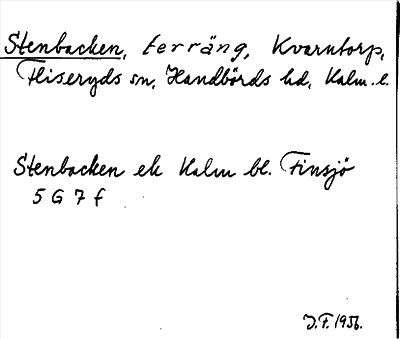 Stenbacken, terräng, Kvarntorp,
Fliseryds sn, Handbörds hd, Kalm. l.
Stenbacken ek Kalm bl. Finsjö
5 G 7 f
J.F. 1956.